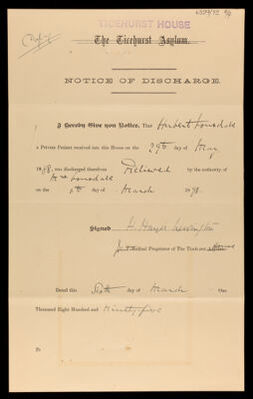 TICEHURST HOUSE
The Ticehurst Asylum.
NOTICE OF DISCHARGE.
I Hereby Give you Notice, That Herbert Lonsdale
a Private Patient received into this House on the 29th day of May
18, was discharged therefrom Relieved by the authority of
Mrs Lonsdale
on the 6th day of March 189.
Signed H. Hayes Newington
Medical Proprietor of The Ticehurst House
Dated this Sixth day of March One
Thousand Eight Hundred and Ninety five
To